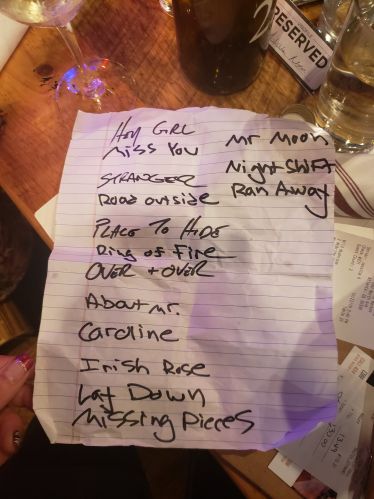 Hey GIRL
Miss You
STRANGER
Road outside
PLACE TO HIDE
Ring of Fire
OVER + OVER
About Mr.
Caroline
Irish Rose
Lay Down
Missing Pieces
Mr Moon
Night Shift
Ran Away
RESERVED